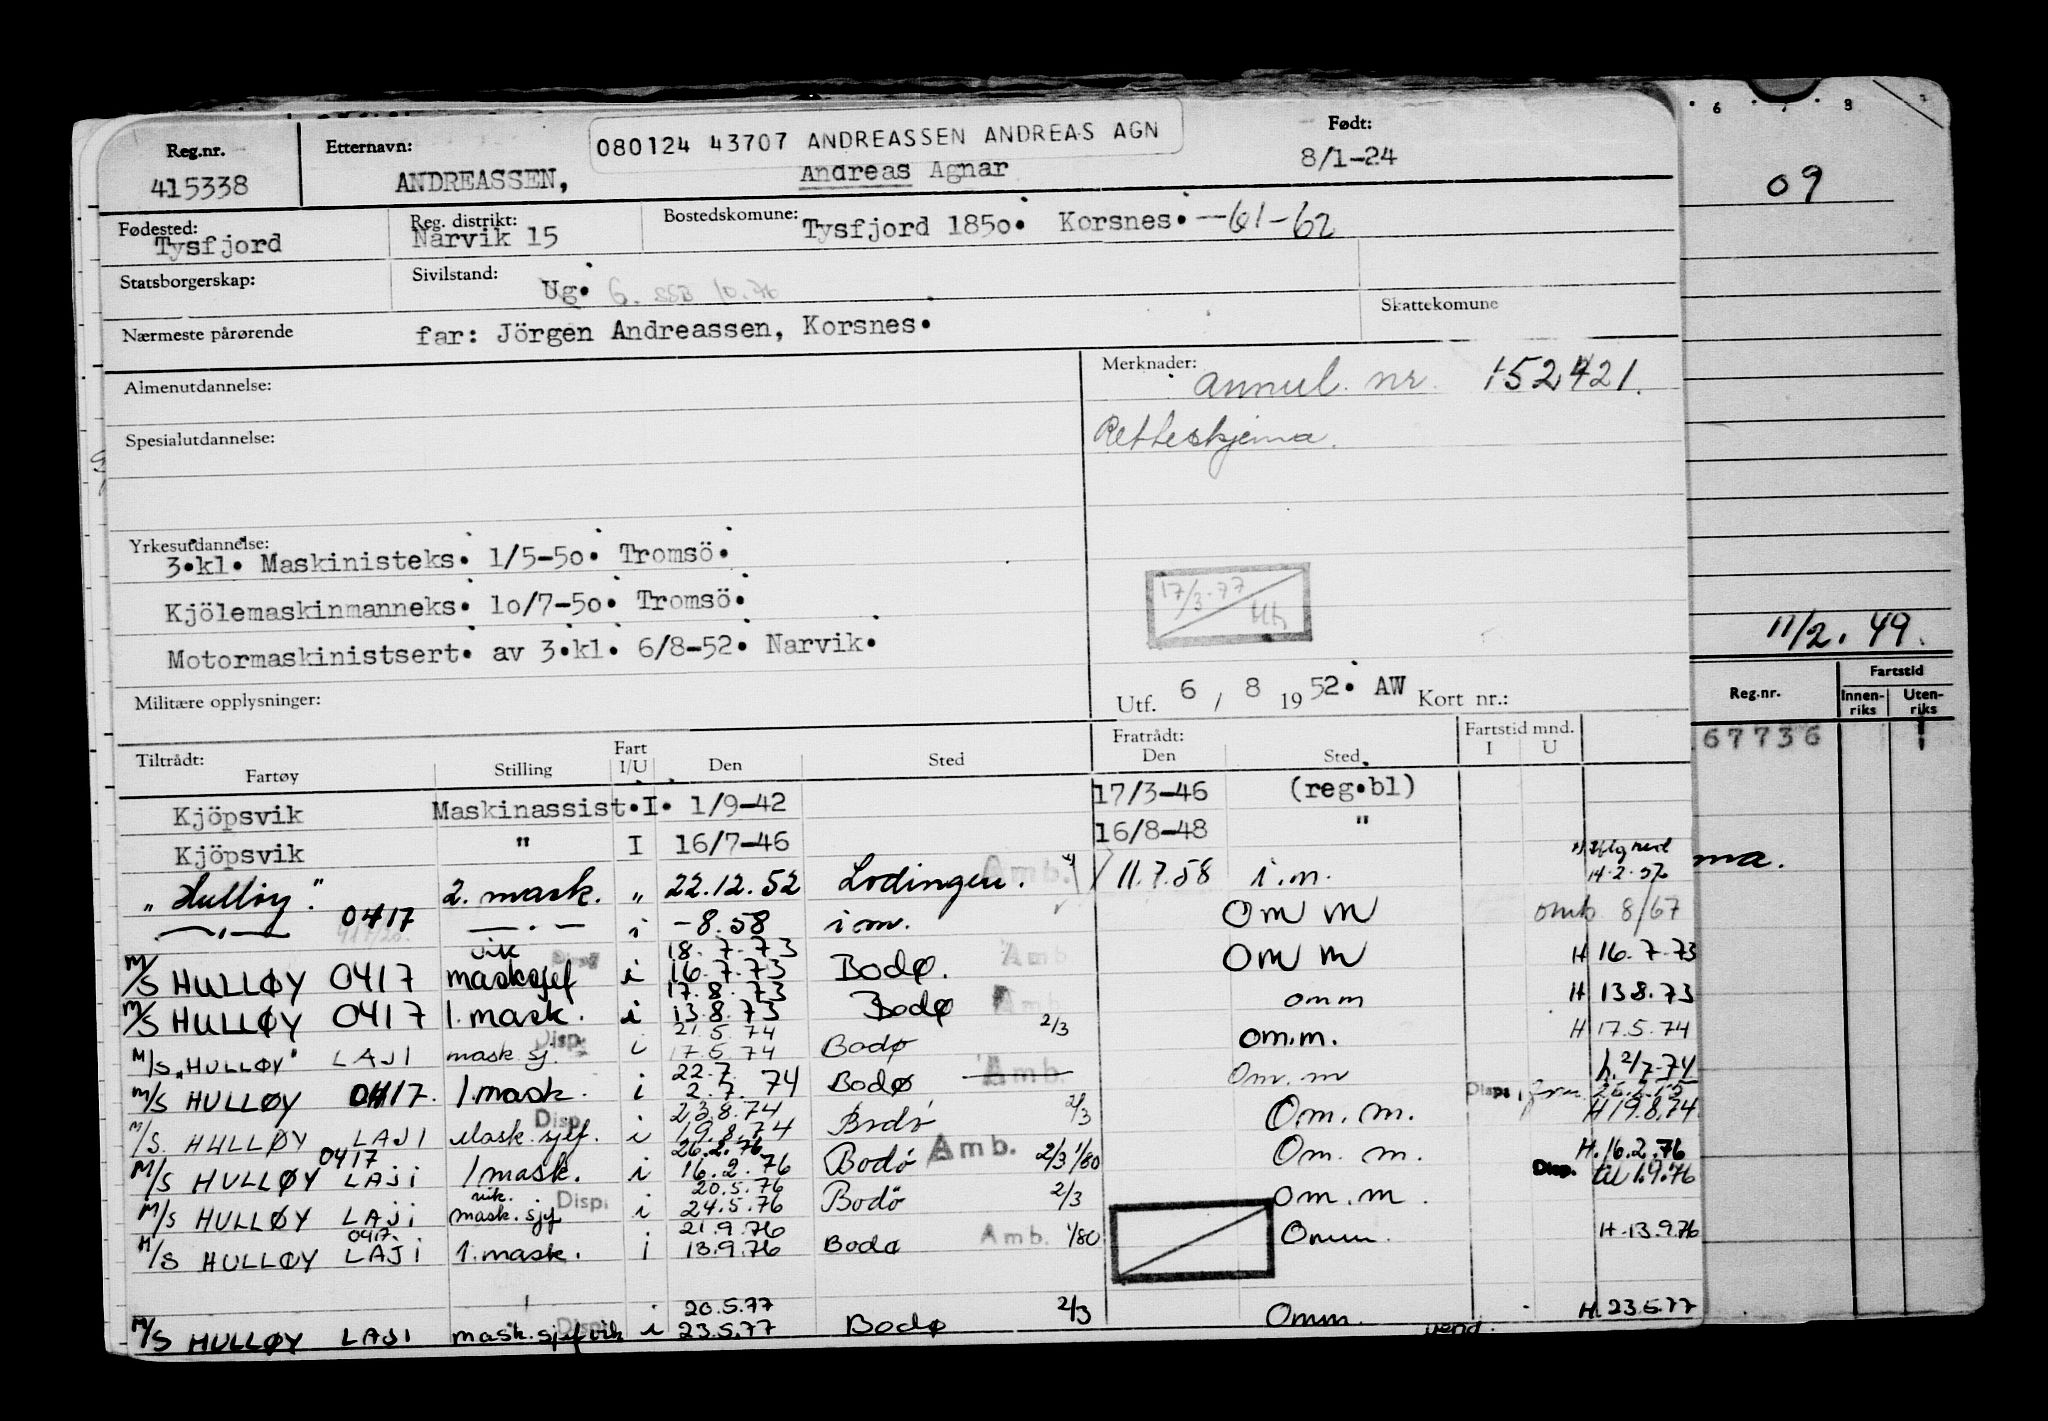 Reg.nr. Etternavn: 080124 43707 ANDREASSEN ANDREAS AGN Født:
415338 ANDREASSEN, Andreas Agnar 8/1-24
Fødested: Reg. distrikt: Bostedskomune:
Tysfjord Narvik 15 Tysfjord 1850. Korsnes. -61-62
Statsborgerskap: Sivilstand: Ug. G. SSB 10.76
Skattekomune
Nærmeste pårørende far: Jörgen Andreassen, Korsnes.
Almenutdannelse: Merknader: annul. nr. 152421.
Spesialutdannelse: Retteskjema.
Yrkesutdannelse:
3.kl. Maskinisteks. 1/5-50. Tromsö.
Kjölemaskinmanneks. 10/7-50. Tromsö.
17/3-77
Motormaskinistsert. av 3.kl. 6/8-52. Narvik.
Militære opplysninger: Utf. 6 / 8 1952. AW Kort nr.:
Tiltrådt: Fratrådt: Fartstid mnd.
Fartøy Stilling Fart I/U Den Sted Den Sted I U
Kjöpsvik Maskinassist. I. 1/9-42 17/3-46 (reg.bl)
Kjöpsvik " I 16/7-46 16/8-48 "
"Hulløy." 2. mask. " 22.12.52 Lodingen. Amb. 11.7.58 i.m. 14.2.57
—"— 0417 —"— i -8.58 i m. Om m omb 8/67
vik 18.7.73
M/S HULLØY 0417 masksjef i 16.7.73 Bodø. Amb Om m H 16.7.73
17.8.73
M/S HULLØY 0417 1.mask. i 13.8.73 Bodø Amb omm H 13.8.73
Disp. 21.5.74 2/3
M/S "HULLØY" LAJI mask sj. i 17.5.74 Bodø om.m. H 17.5.74
22.7. h. 2/7-74
M/S HULLØY 0417. 1.mask. i 2.7. 74 Bodø Amb. Om. m Disp.
Disp. 23.8.74 2/3
M/S. HULLØY LAJI Mask.sjef. i 19.8.74 Bodø Om. m. H 19.8.74
0417 26.2.76
M/S HULLØY LAJI 1mask. i 16.2.76 Bodö Amb. 2/3 1/80 Om. m. H. 16.2.76
vik. Disp. 20.5.76 Disp. til 1.9.76
M/S HULLØY LAJI mask.sjef i 24.5.76 Bodö 2/3 om.m.
0417. 21.9.76
M/S HULLØY LAJI 1.mask. i 13.9.76 Bodø Amb. 1/80 Omm. H.13.9.76
20.5.77
M/S HULLØY LAJI mask.sjef vik i 23.5.77 Bodø 2/3 Omm. H.23.5.77
vend.
6 7 8
09
11/2.49.
Reg.nr. Fartstid
Innen-riks Uten-riks
67736 1
ma.